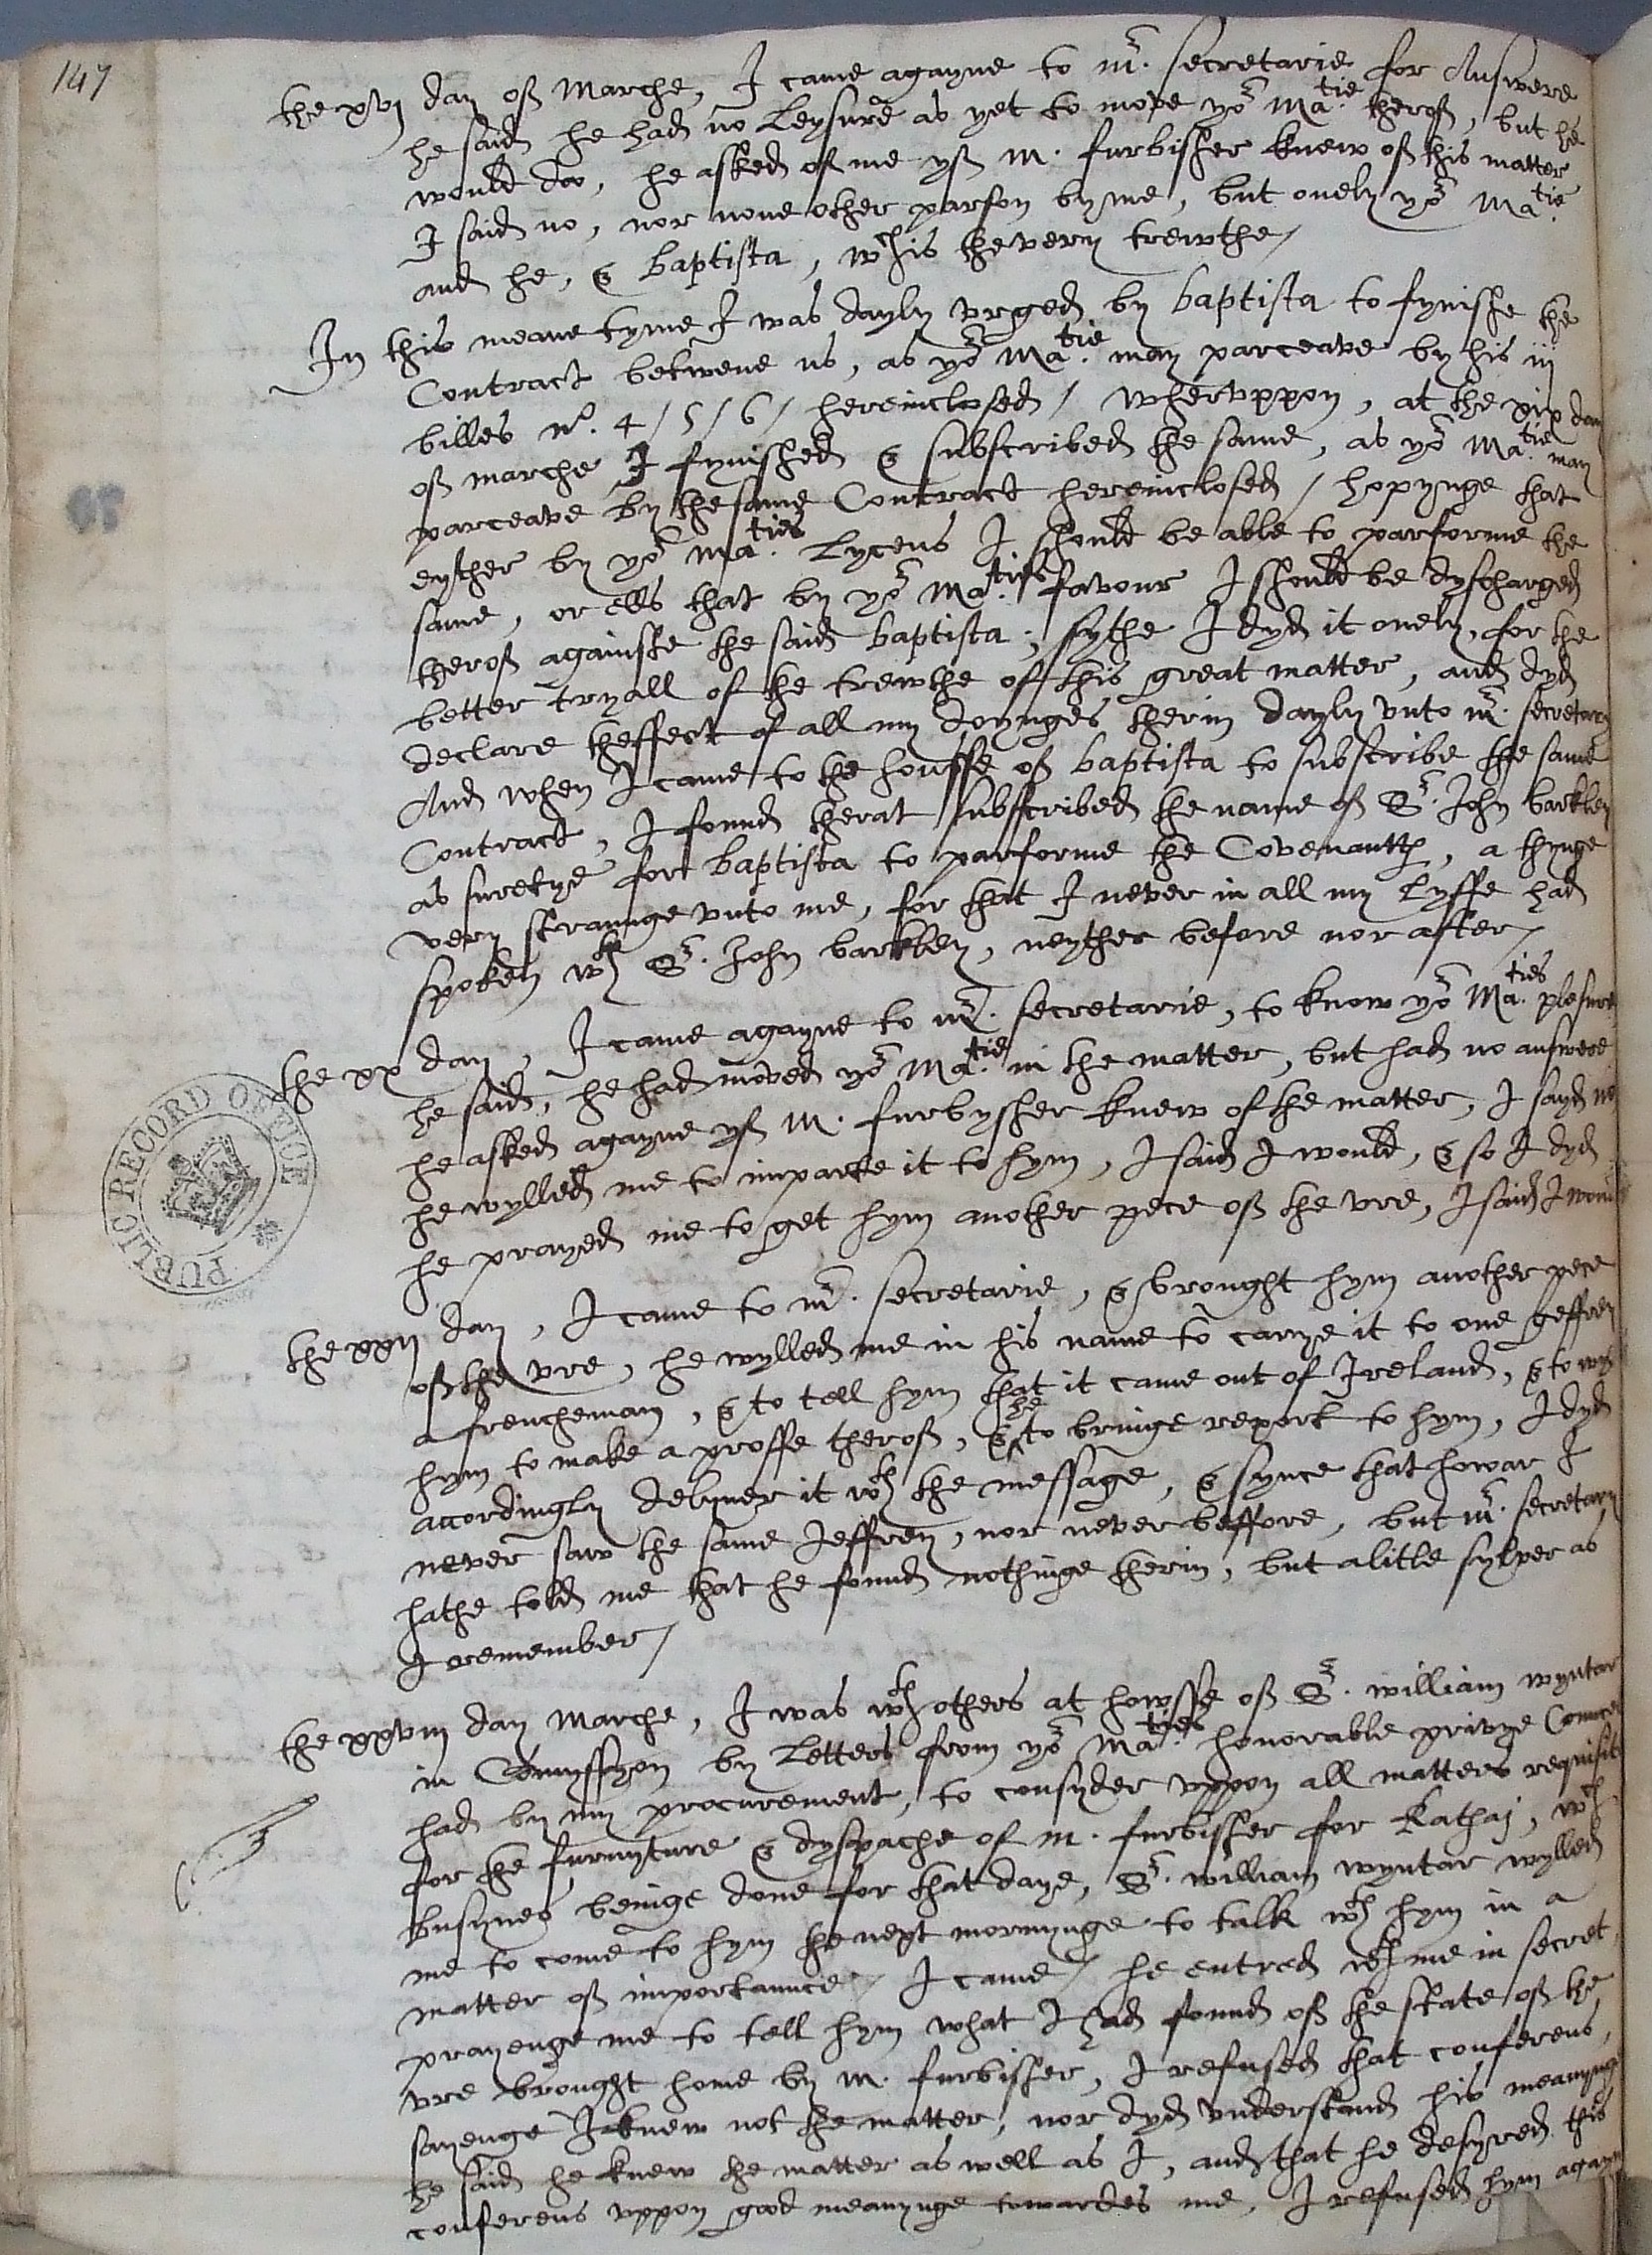 147
the xvj day off Marche, I came agayne to mr. secretarie for Answere
he said he had no Leysure as yet to move yor Ma.tie theroff, but he
would doo, he asked of me yff M. furbisher knew off this matter
I said no, nor none other parson by me, but onely yor Ma.tie
and he, & baptista, wch is the very trewthe /
In this meane tyme I was dayly vrged by baptista to fynishe the
Contract betwene us, as yor Ma.tie may parceave by his iij
billes no. 4 / 5 / 6 / hereinclosed / whervppon, at the xix day
off marche I fynished & subscribed the same, as yor Ma.tie may
parceave by the same Contract hereinclosed / hopynge that
eyther by yor Ma.ties Lycens I should be able to parforme the
same, or ells that by yor Ma.ties favour I should be dyscharged
theroff againste the said baptista; sythe I dyd it onely, for the
better tryall of the trewthe of this great matter, and dyd
declare theffect of all my doynges therin dayly vnto mr. secretary
And when I came to the housse off baptista to subscribe the same
Contract, I found therat subscribed the name off Sr. John barkley
as suretye for baptista to parforme the Covenantes, a thynge
very straunge vnto me, for that I never in all my Lyffe had
spoken wth Sr. John barkley, neyther before nor after /
the xx day, I came agayne to mr. secretarie, to know yor Ma.ties plesure,
he said, he had moved yor Ma.tie in the matter, but had no answere
he asked agayne yff M. furbysher knew of the matter, I sayd no
he wylled me to imparte it to hym, I said I would, & so I dyd
he prayed me to get hym another pece off the vre, I said I would
the xxij day, I came to mr. secretarie, & brought hym another pece
off the vre, he wylled me in his name to carye it to one geffrey
a frencheman, & to tell hym that it came out of Ireland, & to wyll
hym to make a proffe theroff, & he to bringe report to hym, I dyd
accordingly delyver it wth the message, & synce that howar I
never saw the same Jeffrey, nor never beffore, but mr. secretary
hathe told me that he found nothinge therin, but a litle sylver as
I remember /
the xxviij day Marche, I was wth others at howsse off Sr. william wyntar
in Comyssyon by Letters from yor Ma.ties honorable privye Councell
had by my procurement, to consyder vppon all matters requisite
for the furnyture & dyspache of M. furbisher for Kathai, wch
busynes beinge done for that daye, Sr. william wyntar wylled
me to come to hym the next mornynge to talk wth hym in a
matter off importaunce / I came / he entred wth me in secret
prayenge me to tell hym what I had found off the state off the
vre brought home by M. furbisher, I refused that conferens,
sayenge I knew not the matter, nor dyd vnderstand his meanynge
he said he knew the matter as well as I, and that he desyred this
conferens vppon good meanynge towardes me, I refused hym agayne
PUBLIC RECORD OFFICE